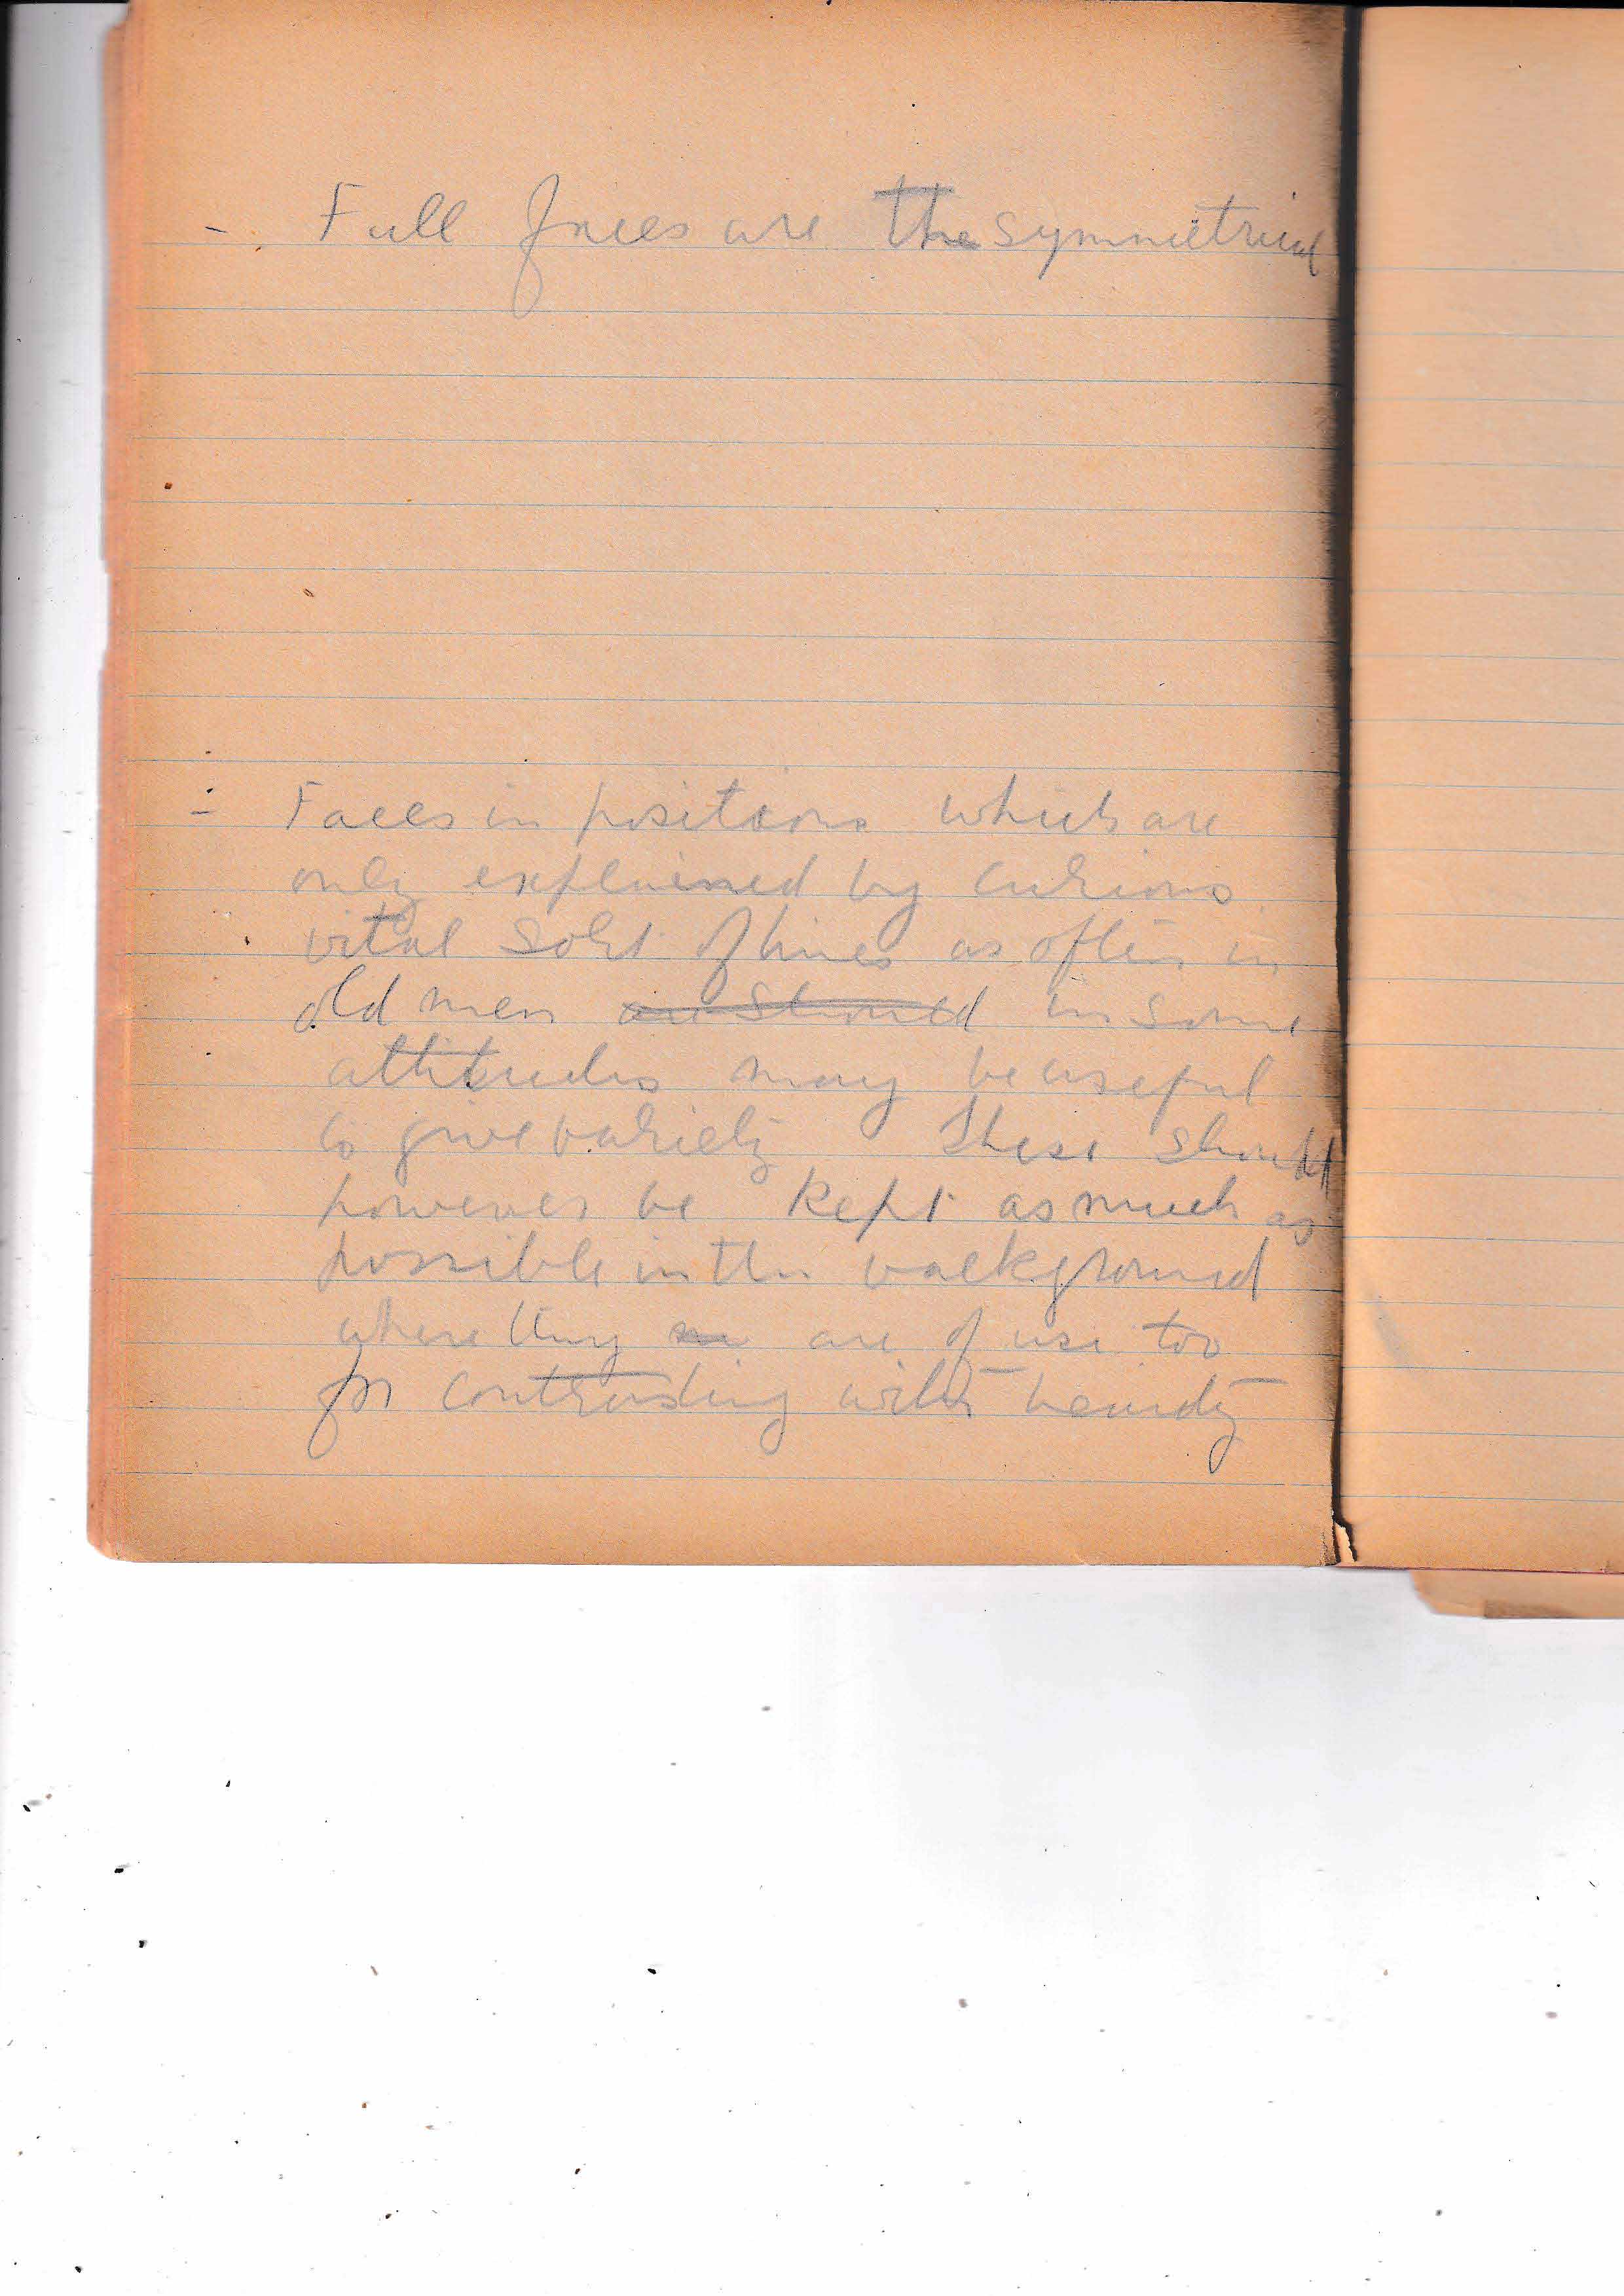 - Full faces are the symmetrical
- Faces in positions which are
only explained by curious
vital sort of lines as often in
old men are should in some
attitudes may be useful
to give variety These should
however be kept as much as
possible in the background
where they are of use too
for contrasting with beauty